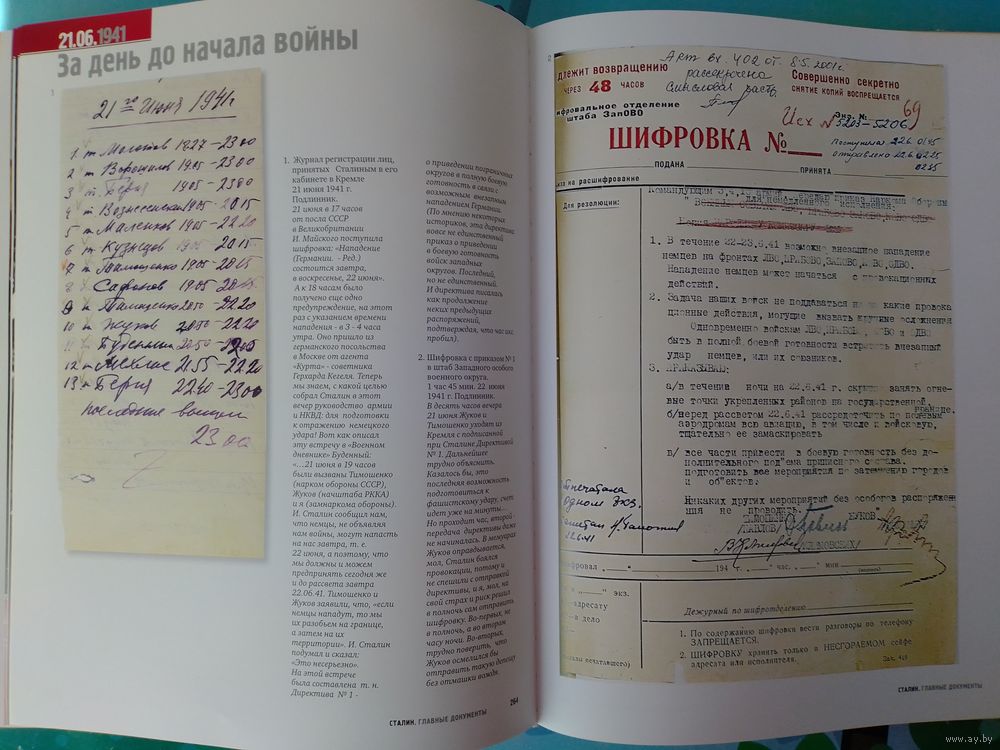 21.06.1941
За день до начала войны
1
21 го Июня 1941 г
1 т Молотов 1827 – 2300
2 т Ворошилов 1905 – 2300
3 т Берия 1905 – 2300
4 т Вознесенский 1905 – 2015
5 т Маленков 1905 – 2220
6 т Кузнецов 1905 – 2015
7 т Тимошенко 1905 – 2015
8 т Сафонов 1905 – 2015
9 т Тимошенко 2050 – 2220
10 т Жуков 2050 – 2220
11 т Буденный 2050 – 2200
12 т Мехлис 2155 – 2220
13 т Берия 2240 – 2300
последние вышли
23 00
1. Журнал регистрации лиц,
принятых Сталиным в его
кабинете в Кремле
21 июня 1941 г.
Подлинник.
21 июня в 17 часов
от посла СССР
в Великобритании
И. Майского поступила
шифровка: «Нападение
(Германии. - Ред.)
состоится завтра,
в воскресье, 22 июня».
А к 18 часам было
получено еще одно
предупреждение, на этот
раз с указанием времени
нападения - в 3 - 4 часа
утра. Оно пришло из
германского посольства
в Москве от агента
«Курта» - советника
Герхарда Кегеля. Теперь
мы знаем, с какой целью
собрал Сталин в этот
вечер руководство армии
и НКВД: для подготовки
к отражению немецкого
удара! Вот как описал
эту встречу в «Военном
дневнике» Буденный:
«...21 июня в 19 часов
были вызваны Тимошенко
(нарком обороны СССР),
Жуков (начштаба РККА)
и я (замнаркома обороны).
И. Сталин сообщил нам,
что немцы, не объявляя
нам войны, могут напасть
на нас завтра, т. е.
22 июня, а поэтому, что
мы должны и можем
предпринять сегодня же
и до рассвета завтра
22.06.41. Тимошенко и
Жуков заявили, что, «если
немцы нападут, то мы
их разобьем на границе,
а затем на их
территории». И. Сталин
подумал и сказал:
«Это несерьезно».
На этой встрече
была составлена т. н.
Директива № 1 -
о приведении пограничных
округов в полную боевую
готовность в связи с
возможным внезапным
нападением Германии.
(По мнению некоторых
историков, эта директива
вовсе не единственный
приказ о приведении
в боевую готовность
войск западных
округов. Последний,
но не единственный.
И директива писалась
как продолжение
неких предыдущих
распоряжений,
подтверждая, что час икс
пробил).
2. Шифровка с приказом № 1
в штаб Западного особого
военного округа.
1 час 45 мин. 22 июня
1941 г. Подлинник.
В десять часов вечера
21 июня Жуков и
Тимошенко уходят из
Кремля с подписанной
при Сталине Директивой
№ 1. Дальнейшее
трудно объяснить.
Казалось бы, это
последняя возможность
подготовиться к
фашистскому удару, счет
идет уже на минуты...
Но проходит час, второй -
передача директивы даже
не начиналась. В мемуарах
Жуков оправдывается,
мол, Сталин боялся
провокации, потому и
не спешили с отправкой
директивы, и я, мол, на
свой страх и риск решил
в полночь сам отправить
шифровку. Во-первых, не
в полночь, а во втором
часу ночи. Во-вторых,
трудно поверить, что
Жуков осмелился бы
отправить такую депешу
без отмашки вождя.
СТАЛИН. ГЛАВНЫЕ ДОКУМЕНТЫ
264
2
Акт вх. 402 от 8.5.2001г.
рассекречена
смысловая часть.
длежит возвращению
ЧЕРЕЗ 48 ЧАСОВ
Совершенно секретно
СНЯТИЕ КОПИЙ ВОСПРЕЩАЕТСЯ
ифровальное отделение
штаба ЗапОВО
69
Экз. №
Исх №5203–5206
ШИФРОВКА №
Поступила 22.6 0145
отправлено 22.6 0225
0235
ПОДАНА
ПРИНЯТА
на расшифрование
Для резолюции:
Командующим 3, 4, 10 армий
приказ наркома обороны
для немедленного исполнения:
1. В течение 22-23.6.41 возможно внезапное нападение
немцев на фронтах ЛВО, ПРИБОВО, ЗАПОВО, КОВО, ОДВО.
Нападение немцев может начаться с провокационных
действий.
2. Задача наших войск не поддаваться ни на какие провока
ционные действия, могущие вызвать крупные осложнения
Одновременно войскам ЛВО, ПРИБОВО, КОВО и ОДВО
быть в полной боевой готовности встретить внезапный
удар немцев, или их союзников.
3. ПРИКАЗЫВАЮ:
а/в течении ночи на 22.6.41 г. скрытно занять огне-
вые точки укрепленных районов на государственной
границе.
б/перед рассветом 22.6.41 рассредоточить по полевым
аэродромам всю авиацию, в том числе и войсковую,
тщательно ее замаскировать
в/ все части привести в боевую готовность без до-
полнительного под"ема приписного состава.
подготовить все мероприятия по затемнению городов
и об"ектов.
Никаких других мероприятий без особого распоряже
ния не проводить.
ТИМОШЕНКО
ЖУКОВ
ПАВЛОВ/
КЛИМОВСКИХ/
печатала
одном экз.
22.6.41
шифровал „ “ 194 г. „ “ час. „ “ мин
(подпись)
„ “ экз.
адресату
в дело
печатавшего)
Дежурный по шифротделению
1. По содержанию шифровки вести разговоры по телефону
ЗАПРЕЩАЕТСЯ.
2. ШИФРОВКУ хранить только в НЕСГОРАЕМОМ сейфе
адресата или исполнителя.
Зак. 416
СТАЛИН. ГЛАВНЫЕ ДОКУМЕНТЫ
www.ay.by